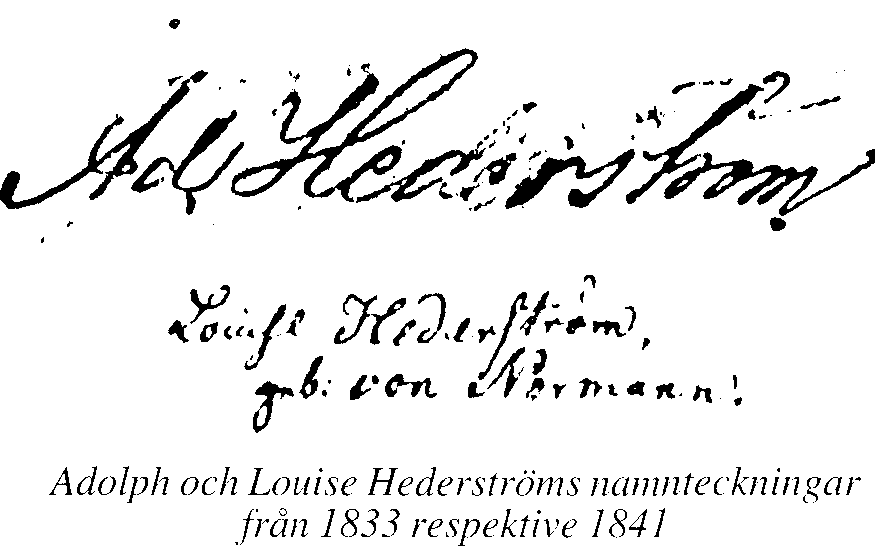 Ad Hederström
Louise Hederström,
geb: von Normann.
Adolph och Louise Hederströms namnteckningar
från 1833 respektive 1841